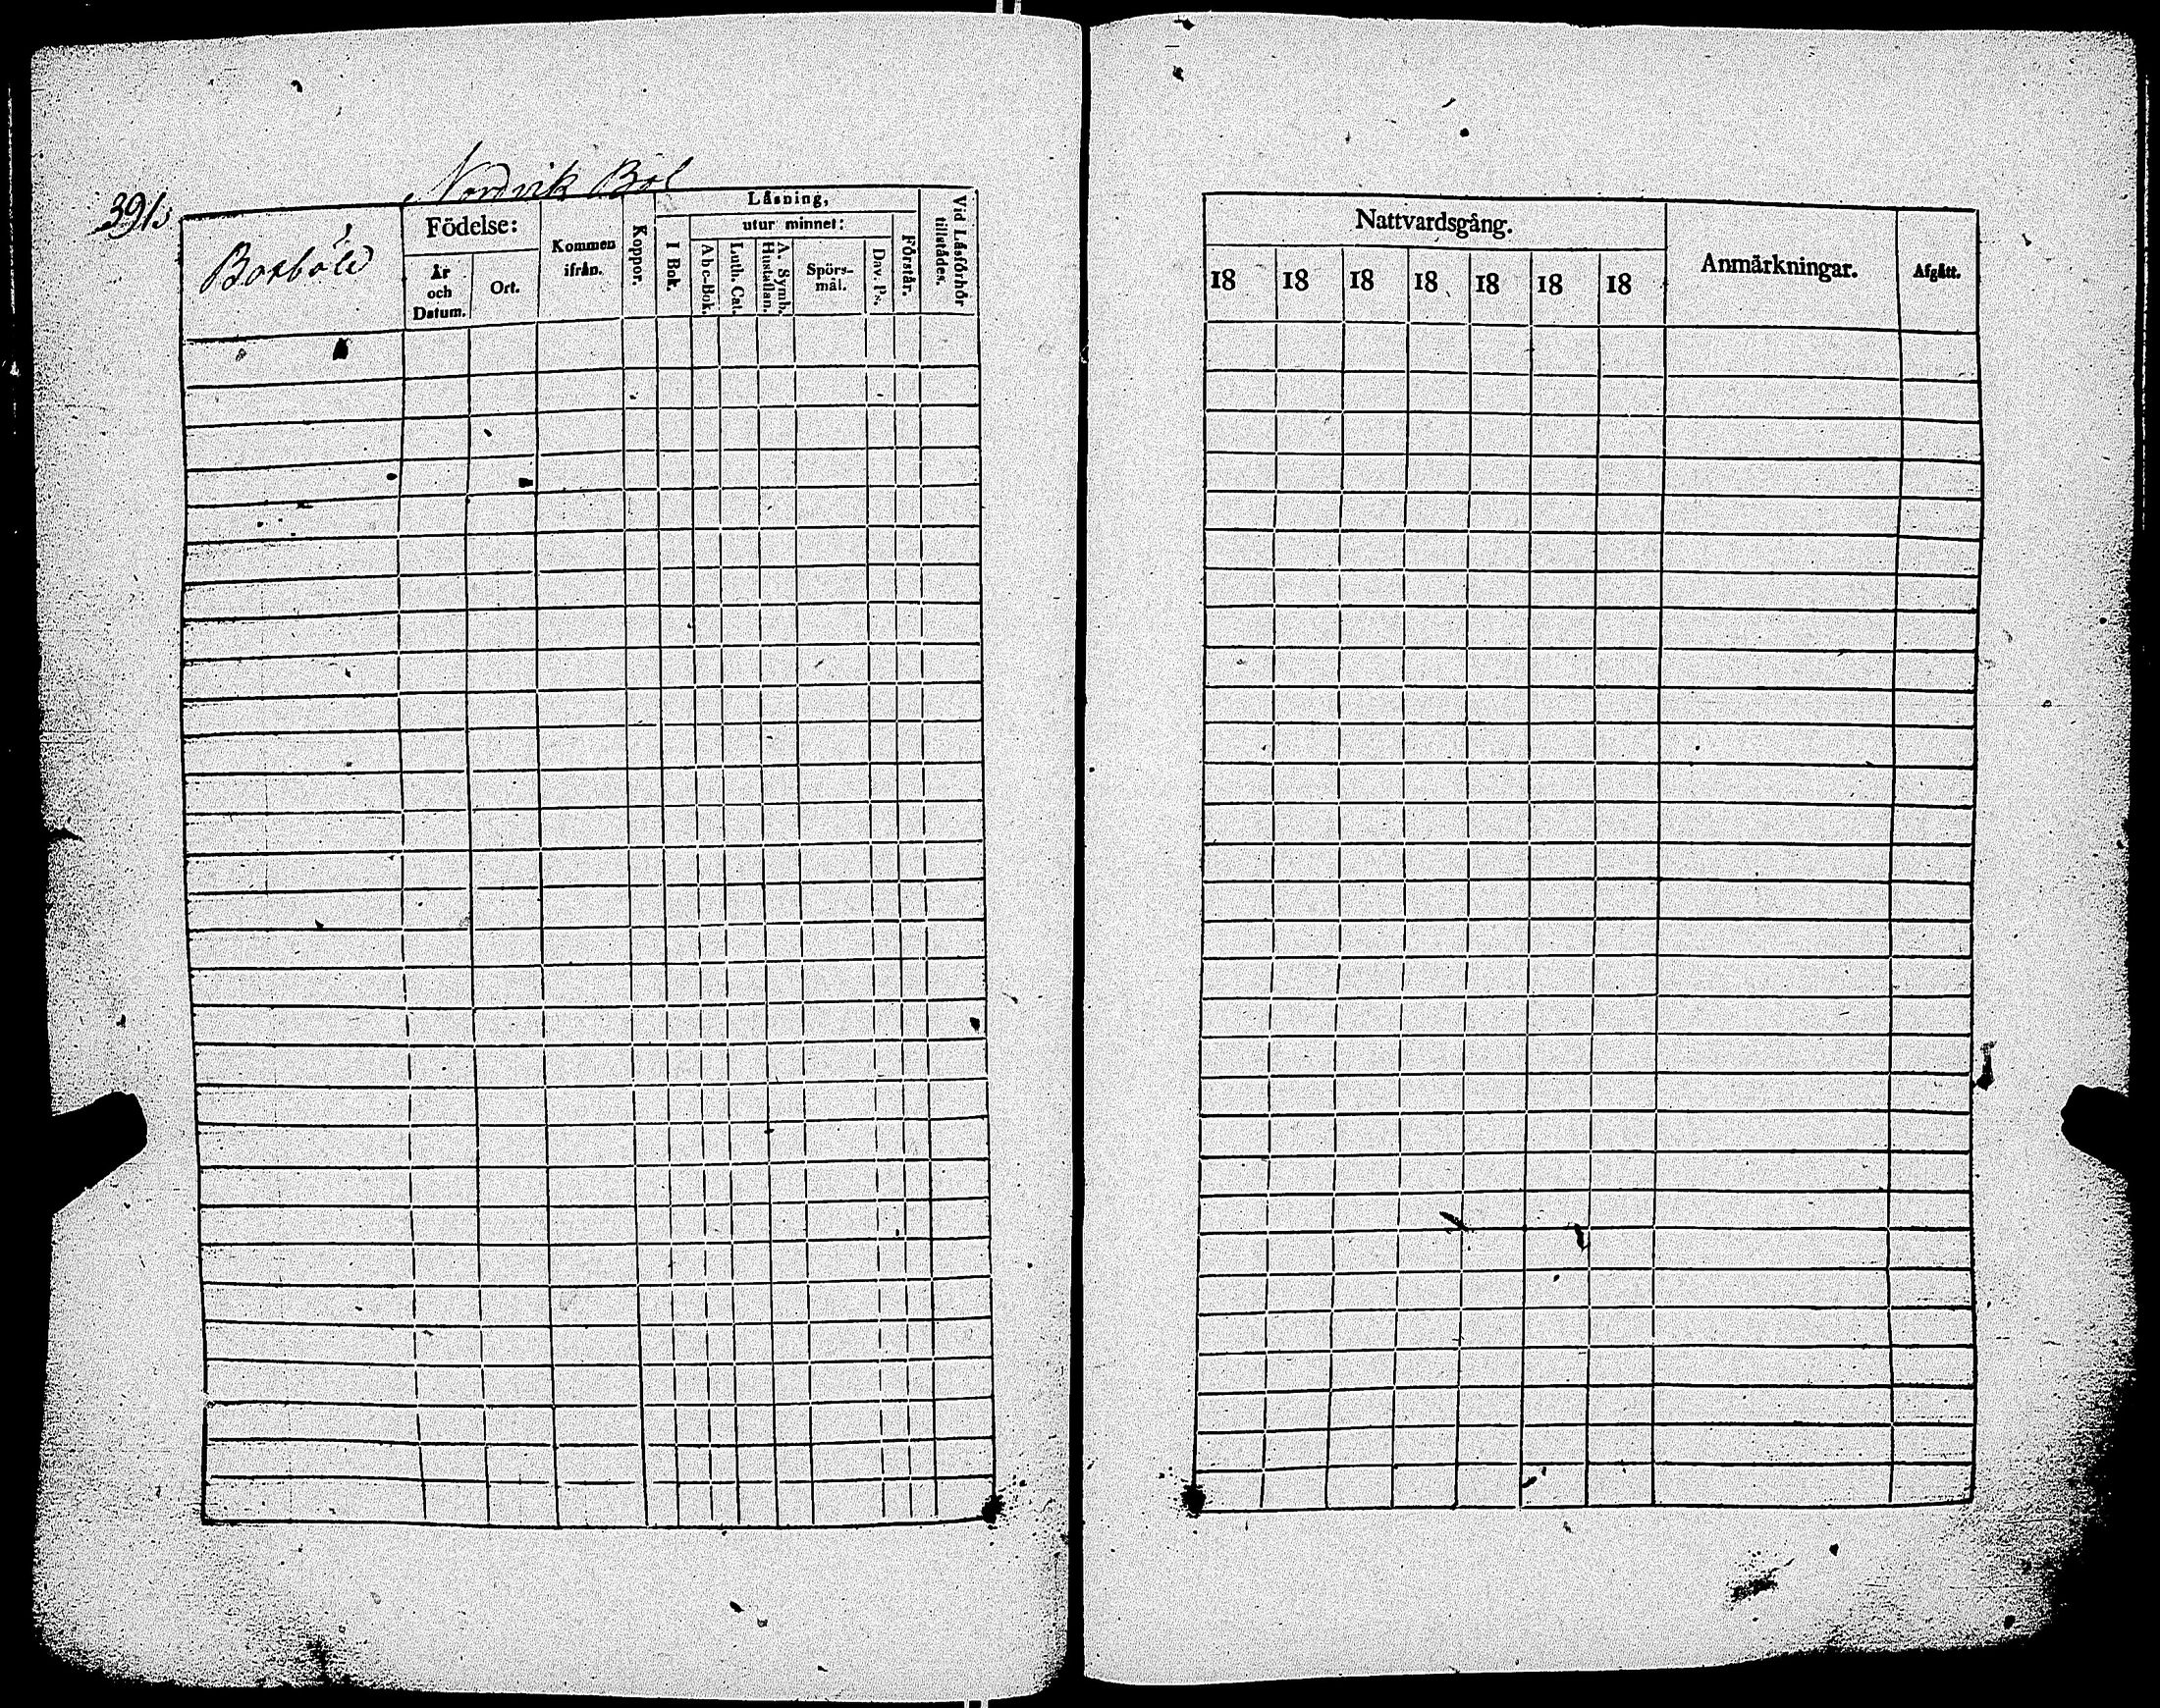 Nordvik Bol
391.
Boxböle
Födelse:
År och Datum.
Ort.
Kommen ifrån.
Koppor.
Läsning,
I Bok.
utur minnet:
Abc-Bok.
Luth. Cat.
A. Symb. Hustaflan.
Spörs-mål.
Dav. Ps.
Förstår.
Vid Läsförhör tillstädes.
Nattvardsgång.
18 18 18 18 18 18 18
Anmärkningar.
Afgått.